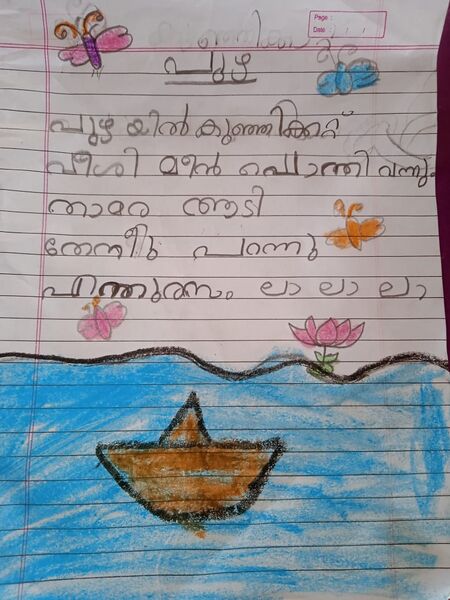 Page :
Date : / /
പുഴ
പുഴ യിൽ കുഞ്ഞിക്കറ്റ്
വീശി മീൻ പൊന്തി വന്നു.
താമര ആടി
പറന്നു
എന്തുരസം ലാ ലാ ലാ